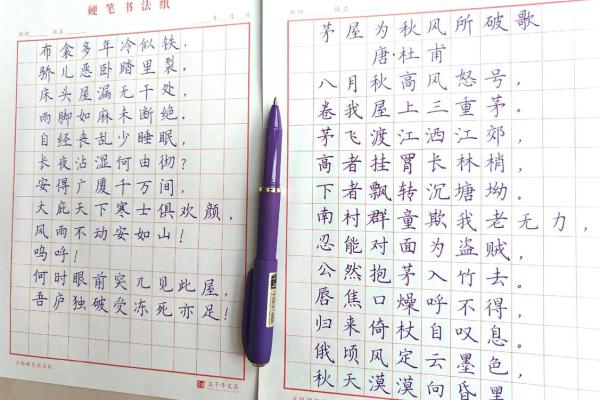 硬笔书法纸
年 月 日
布衾多年冷似铁,
骄儿恶卧踏里裂。
床头屋漏无干处,
雨脚如麻未断绝。
自经丧乱少睡眠,
长夜沾湿何由彻?
安得广厦千万间,
大庇天下寒士俱欢颜,
风雨不动安如山!
呜呼!
何时眼前突兀见此屋,
吾庐独破受冻死亦足!
茅屋为秋风所破歌
唐·杜甫
八月秋高风怒号,
卷我屋上三重茅。
茅飞渡江洒江郊,
高者挂罥长林梢,
下者飘转沉塘坳。
南村群童欺我老无力,
忍能对面为盗贼,
公然抱茅入竹去。
唇焦口燥呼不得,
归来倚杖自叹息。
俄顷风定云墨色,
秋天漠漠向昏黑